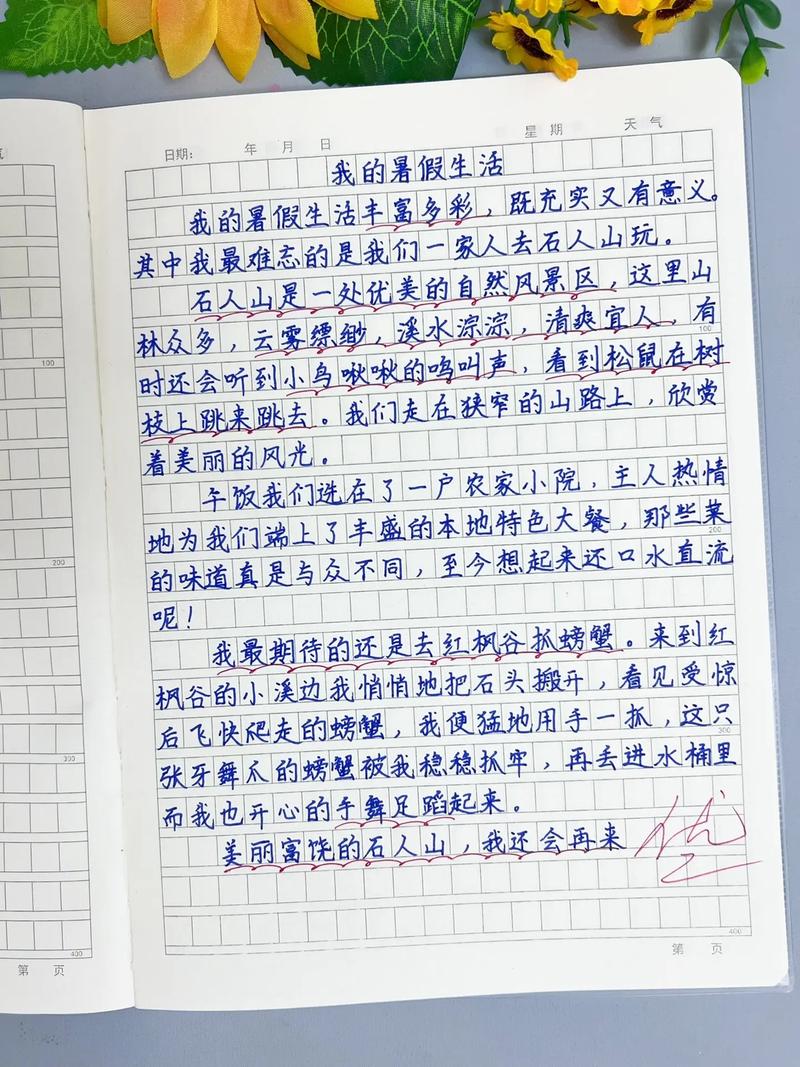 气
日期: 年 月 日 星 期 天 气
我的暑假生活
我的暑假生活丰富多彩，既充实又有意义。
其中我最难忘的是我们一家人去石人山玩。
石人山是一处优美的自然风景区，这里山
林众多，云雾缥缈，溪水淙淙，清爽宜人，有
100
时还会听到小鸟啾啾的鸣叫声，看到松鼠在树
枝上跳来跳去。我们走在狭窄的山路上，欣赏
着美丽的风光。
午饭我们选在了一户农家小院，主人热情
地为我们端上了丰盛的本地特色大餐，那些菜
200
的味道真是与众不同，至今想起来还口水直流
呢！
我最期待的还是去红枫谷抓螃蟹。来到红
枫谷的小溪边我悄悄地把石头搬开，看见受惊
后飞快爬走的螃蟹，我便猛地用手一抓，这只
300
张牙舞爪的螃蟹被我稳稳抓牢，再丢进水桶里
而我也开心的手舞足蹈起来。
美丽富饶的石人山，我还会再来
优
400
第 页
100
200
300
400
第 页